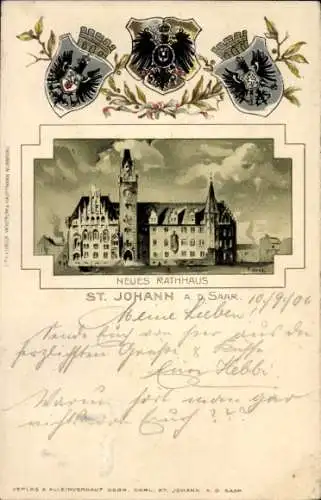 NEUES RATHHAUS
ST. JOHANN A. D. SAAR.
10/9/06
Meine Lieben
Sende Euch von hier aus die
herzlichsten Grüße & Küsse
Euer Hebbi
Warum hört man gar
nichts von Euch ???
VERLAG & ALLEINVERKAUF GEBR. CARL, ST. JOHANN A. D. SAAR.